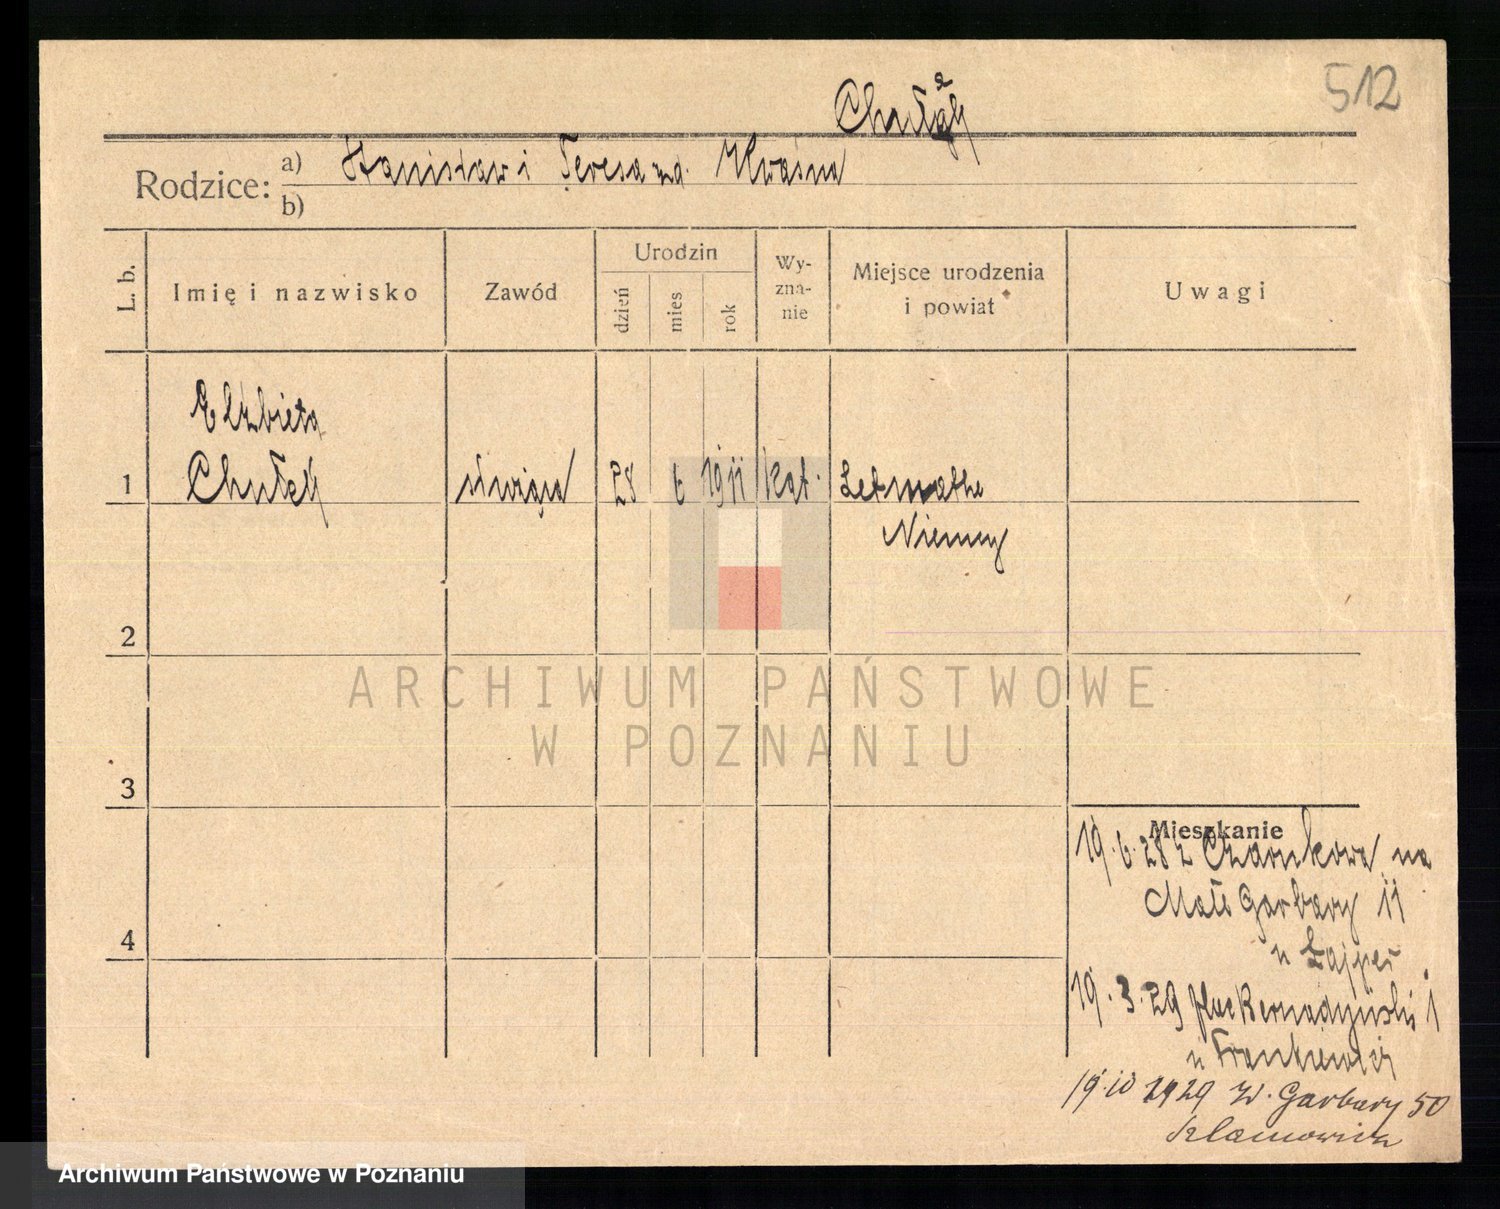 512
Chułek
Rodzice: a) Stanisław i Teresa zd. Kwaśna
b)
L. b. Imię i nazwisko Zawód Urodzin dzień mies rok Wy-zna-nie Miejsce urodzenia i powiat Uwagi
Elżbieta
1 Chułek służąca 28 6 1911 kat. Letmathe
Niemcy
2
ARCHIWUM PAŃSTWOWE
W POZNANIU
3
Mieszkanie
19.6.28 z Czarnkowa na
Małe Garbary 11
4
u
19.3.29 plac Bernadyński 1
u Frankiewicz
19.10 1929 W. Garbary 50
Archiwum Państwowe w Poznaniu